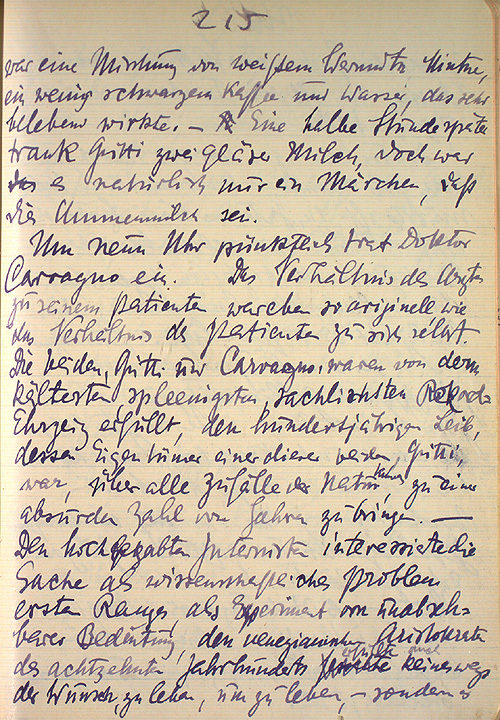 215
war eine Mischung von weißem Wermuth, Minze,
ein wenig schwarzem Kaffee und Wasser, das sehr
belebend wirkte. – Eine halbe Stunde später
trank Gritti zwei Gläser Milch, doch war
es natürlich nur ein Märchen, daß
dies Ammenmilch sei.
Um neun Uhr pünktlich trat Doktor
Carvagno ein. Das Verhältnis des Arztes
zu seinem Patienten war eben so originell wie
das Verhältnis des Patienten zu sich selbst.
Die beiden, Gritti und Carvagno, waren von dem
kältesten spleenigsten, sachlichsten Rekord-
Ehrgeiz erfüllt, den hundertjährigen Leib,
dessen Eigentümer einer dieser beiden, Gritti,
war, über alle Zufälle der Natur zu einer
absurden Zahl von Jahren zu bringen. —
Den hochbegabten Internisten interessierte die
Sache als wissenschaftliches Problem
ersten Ranges, als Experiment von unabseh-
barer Bedeutung, den venezianischen Aristokraten
des achtzehnten Jahrhunderts erfüllte keineswegs
der Wunsch, zu leben, um zu leben, – sondern es